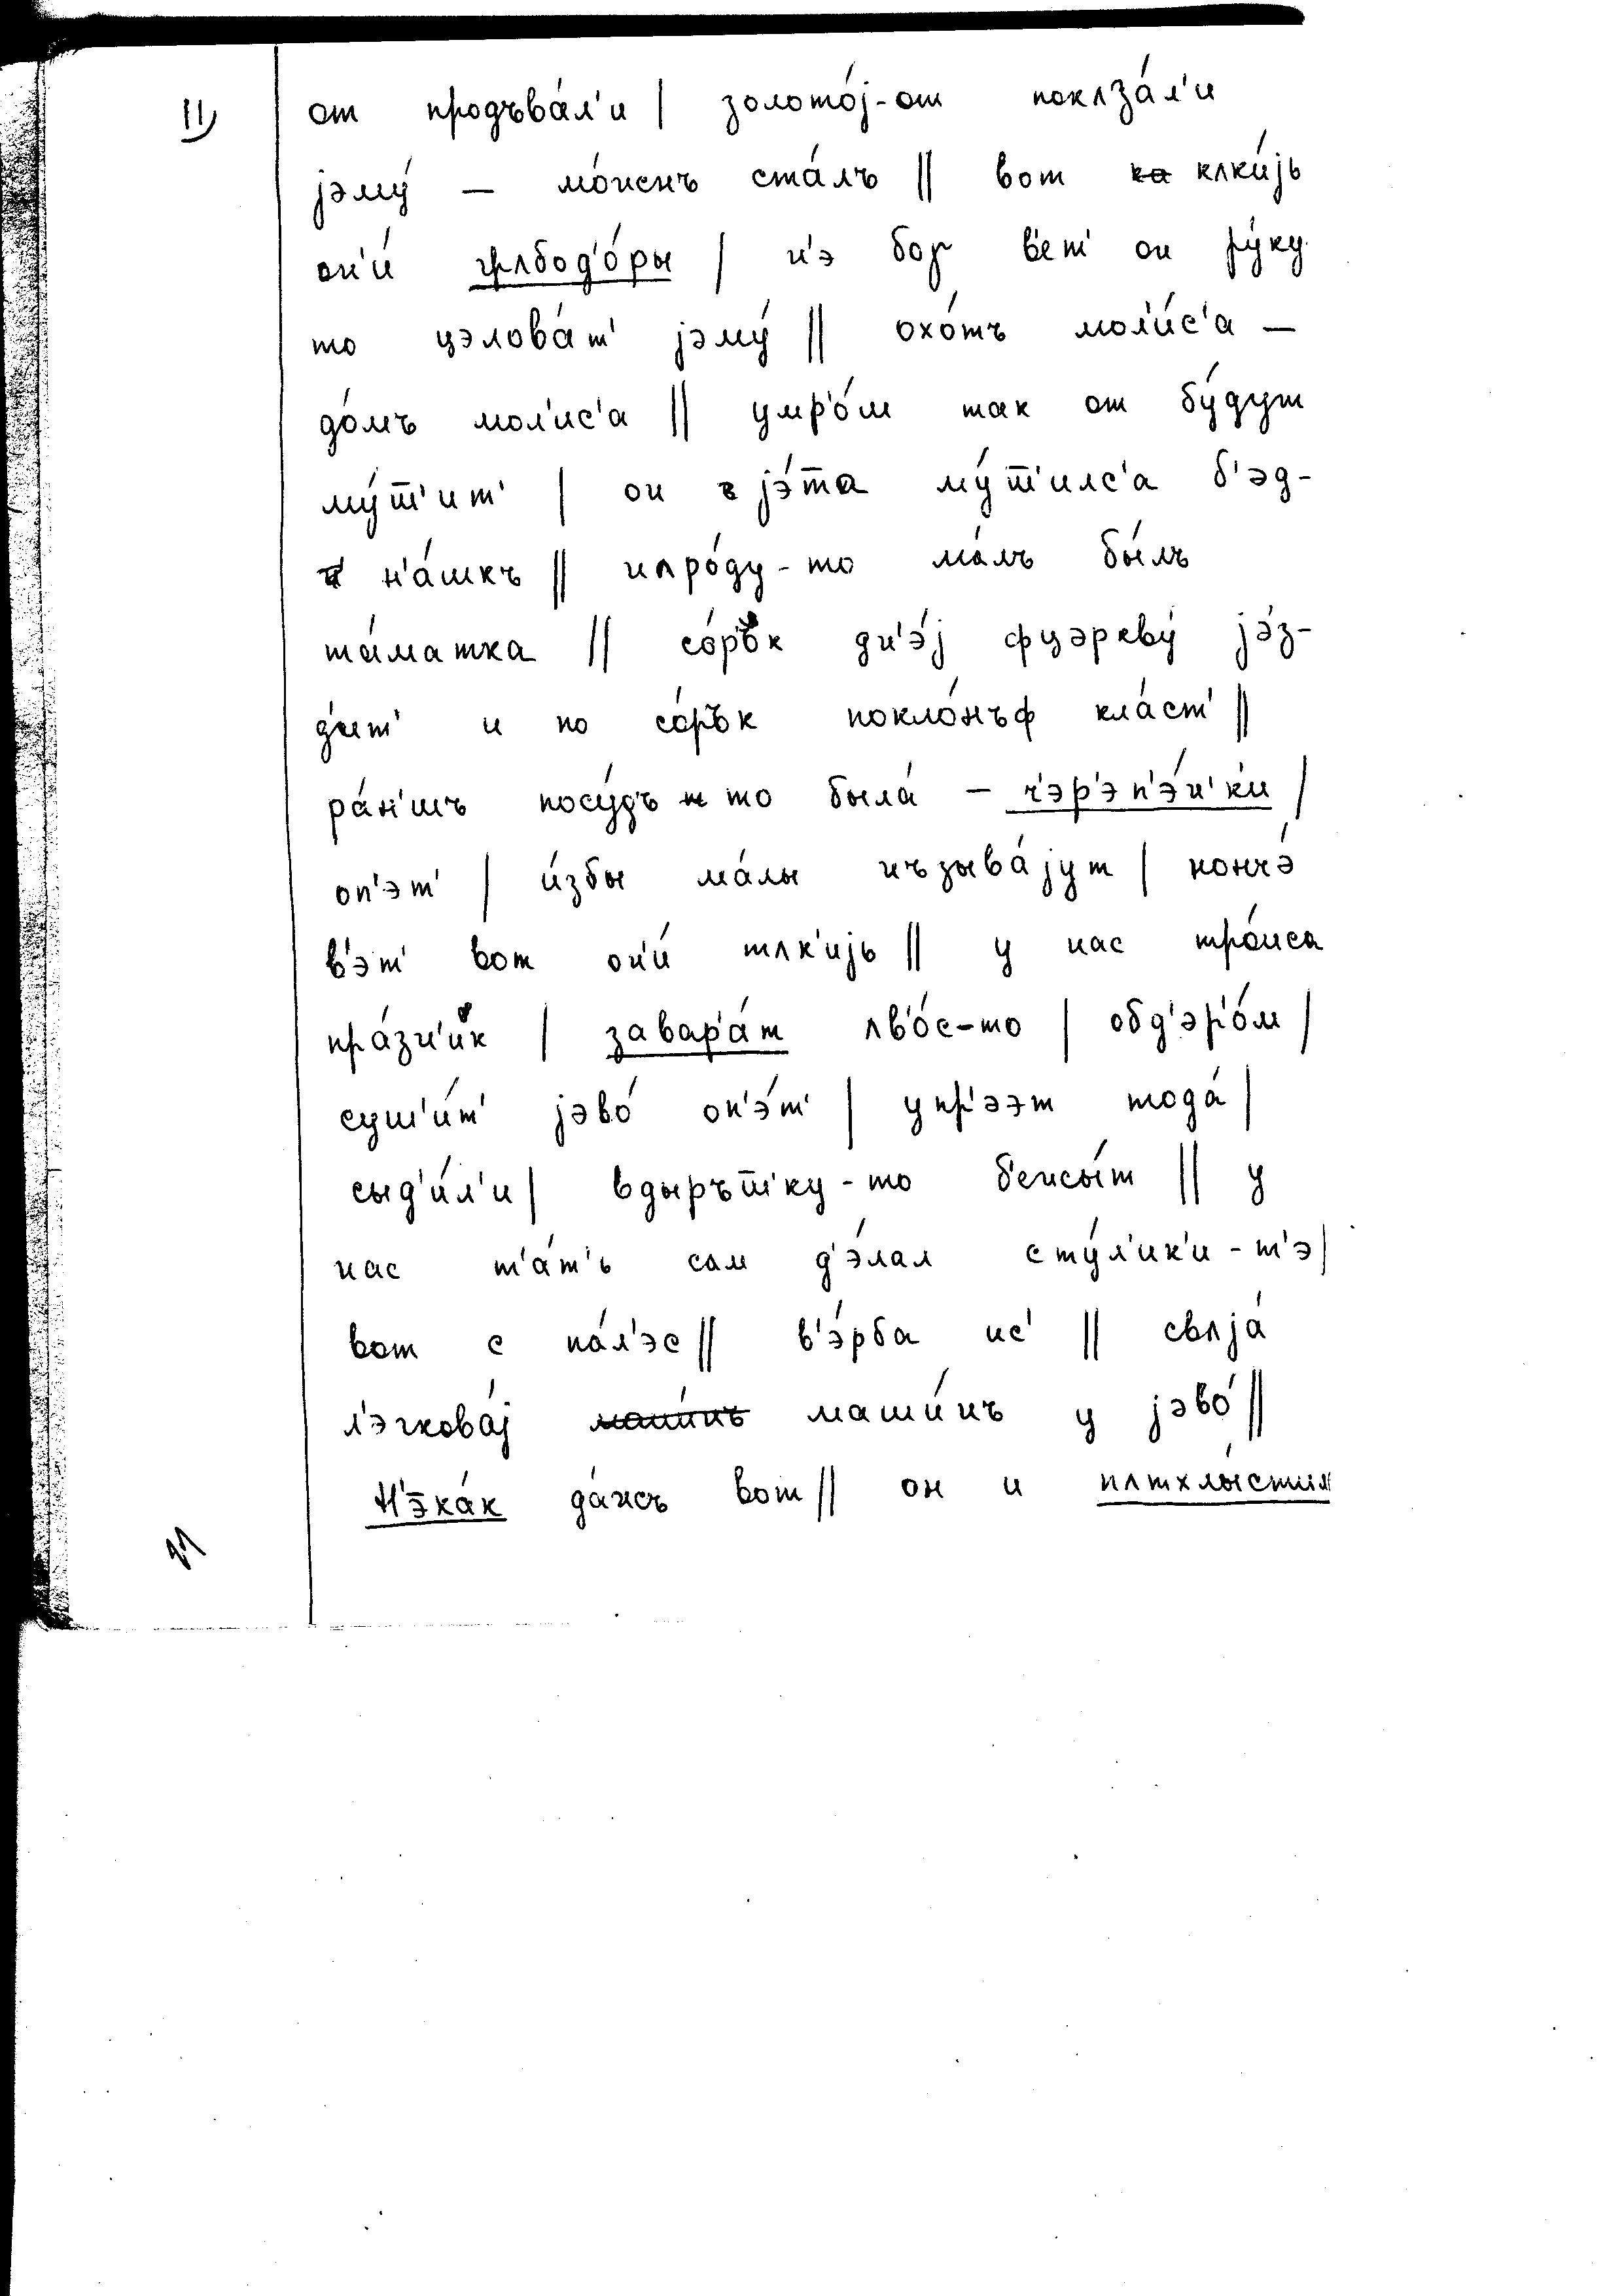 11)
от продъва́л'и | золото́j-от покʌза́л'и
jэму́ — мо́жнъ ста́лъ || вот ка кʌки́jь
он'и́ грʌбод'о́ры | н'э бог в'ет' он ру́ку
то цэлова́т' jэму́ || охо́тъ мол'и́с'а —
до́мъ мол'ис'а || умр'о́ш так от бу́дут
му́т̅'ит' | он jэ́та му́т̅'илс'а б'эд-
н'а́шкъ || нʌро́ду-то ма́лъ бы́лъ
та́матка || со́рък дн'э́j фцэркву́ jэ́з-
д'ит' и по со́рък покло́нъф кла́ст' ||
ра́н'шъ посу́дъ то была́ — ч'эр'эп'э́н'к'и |
оп'эт' | и́збы ма́лы нъзыва́jут | нончэ́
в'эт' вот он'и́ тʌк'иjь || у нас тро́иса
пра́зн'ик | завар'а́т ʌв'о́с-то | обд'эр'о́м |
суш'и́т' jэво́ оп'э́т' | упр'ээт тода́ |
сыд'и́л'и | вдырът̅'ку-то б'ежы́т || у
нас т'а́т'ь сам д'э́лал сту́л'ик'и-т'э |
вот с па́л'эс || в'э́рба ис' || свʌjа́
л'эгкова́j маши́нъ маши́нъ у jэво́ ||
Н'эка́к да́жъ вот || он и пʌтхлы́стил
11